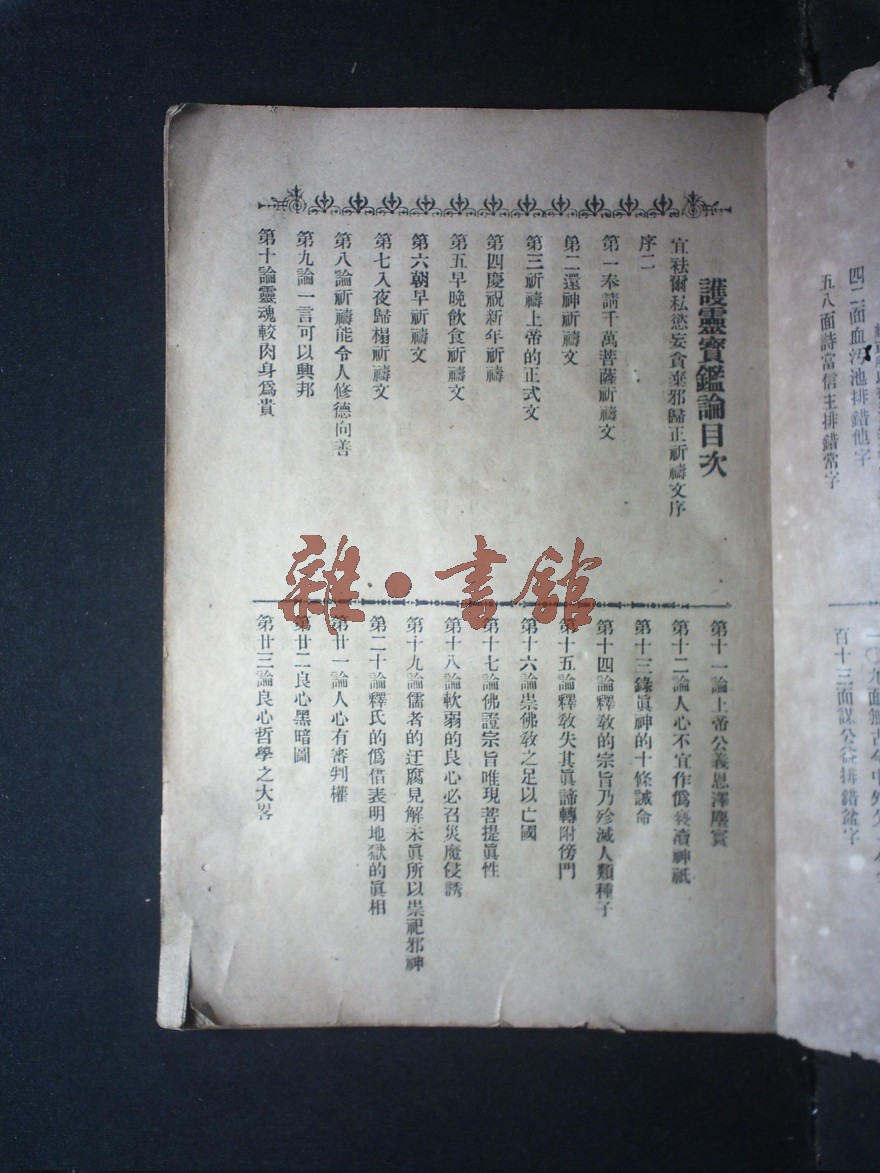 護靈寶鑑論目次
宜祛爾私慾妄貪棄邪歸正祈禱文序
序二
第一奉請千萬菩薩祈禱文
第二還神祈禱文
第三祈禱上帝的正式文
第四慶祝新年祈禱
第五早晚飲食祈禱文
第六朝早祈禱文
第七入夜歸榻祈禱文
第八論祈禱能令人修德向善
第九論一言可以興邦
第十論靈魂較肉身爲貴
第十一論上帝公義恩澤塵寰
第十二論人心不宜作僞褻瀆神祇
第十三錄眞神的十條誡命
第十四論釋敎的宗旨乃殄滅人類種子
第十五論釋敎失其眞諦轉附傍門
第十六論崇佛敎之足以亡國
第十七論佛證宗旨唯現菩提眞性
第十八論軟弱的良心必召災魔侵誘
第十九論儒者的迂腐見解未眞所以崇祀邪神
第二十論釋氏的僞借表明地獄的眞相
第廿一論人心有審判權
第廿二良心黑暗圖
第廿三論良心哲學之大畧
雜·書館
四二面血汚池排錯他字
五八面詩當信主排錯常字
百十三面謀公益排錯盆字